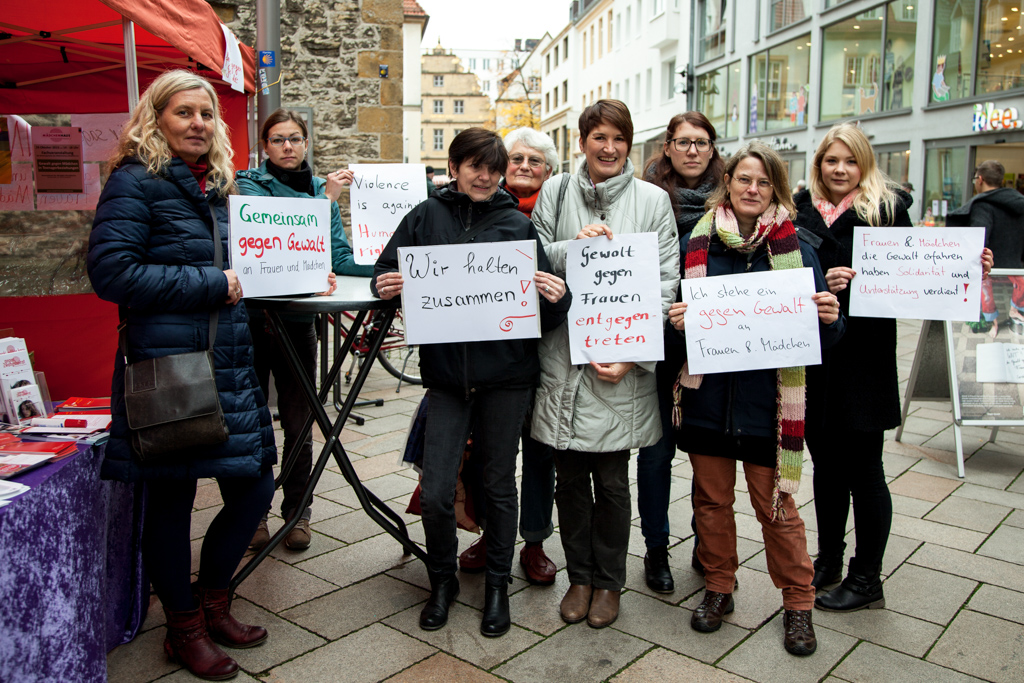 Gemeinsam
gegen Gewalt
an Frauen und Mädchen
Violence
is against
Human
rights
Wir halten
zusammen!
Gewalt
gegen
Frauen
entgegen-
treten
Ich stehe ein
gegen Gewalt
an
Frauen & Mädchen
Frauen & Mädchen
die Gewalt erfahren
haben Solidarität und
Unterstützung verdient!